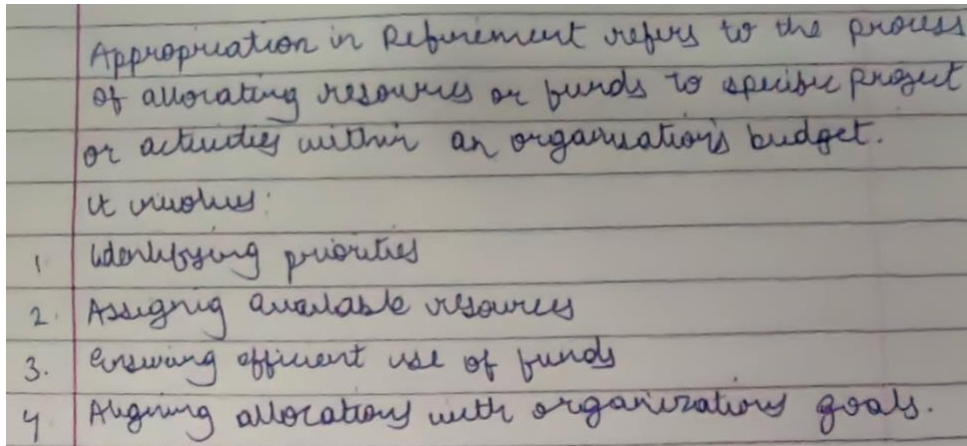 Appropriation in Refinement refers to the process
of allocating resources or funds to specific project
or activities within an organisation's budget.
it involves:
1 Identifying priorities
2. Assigning available resources
3. Ensuring efficient use of funds
4 Aligning allocations with organizations goals.